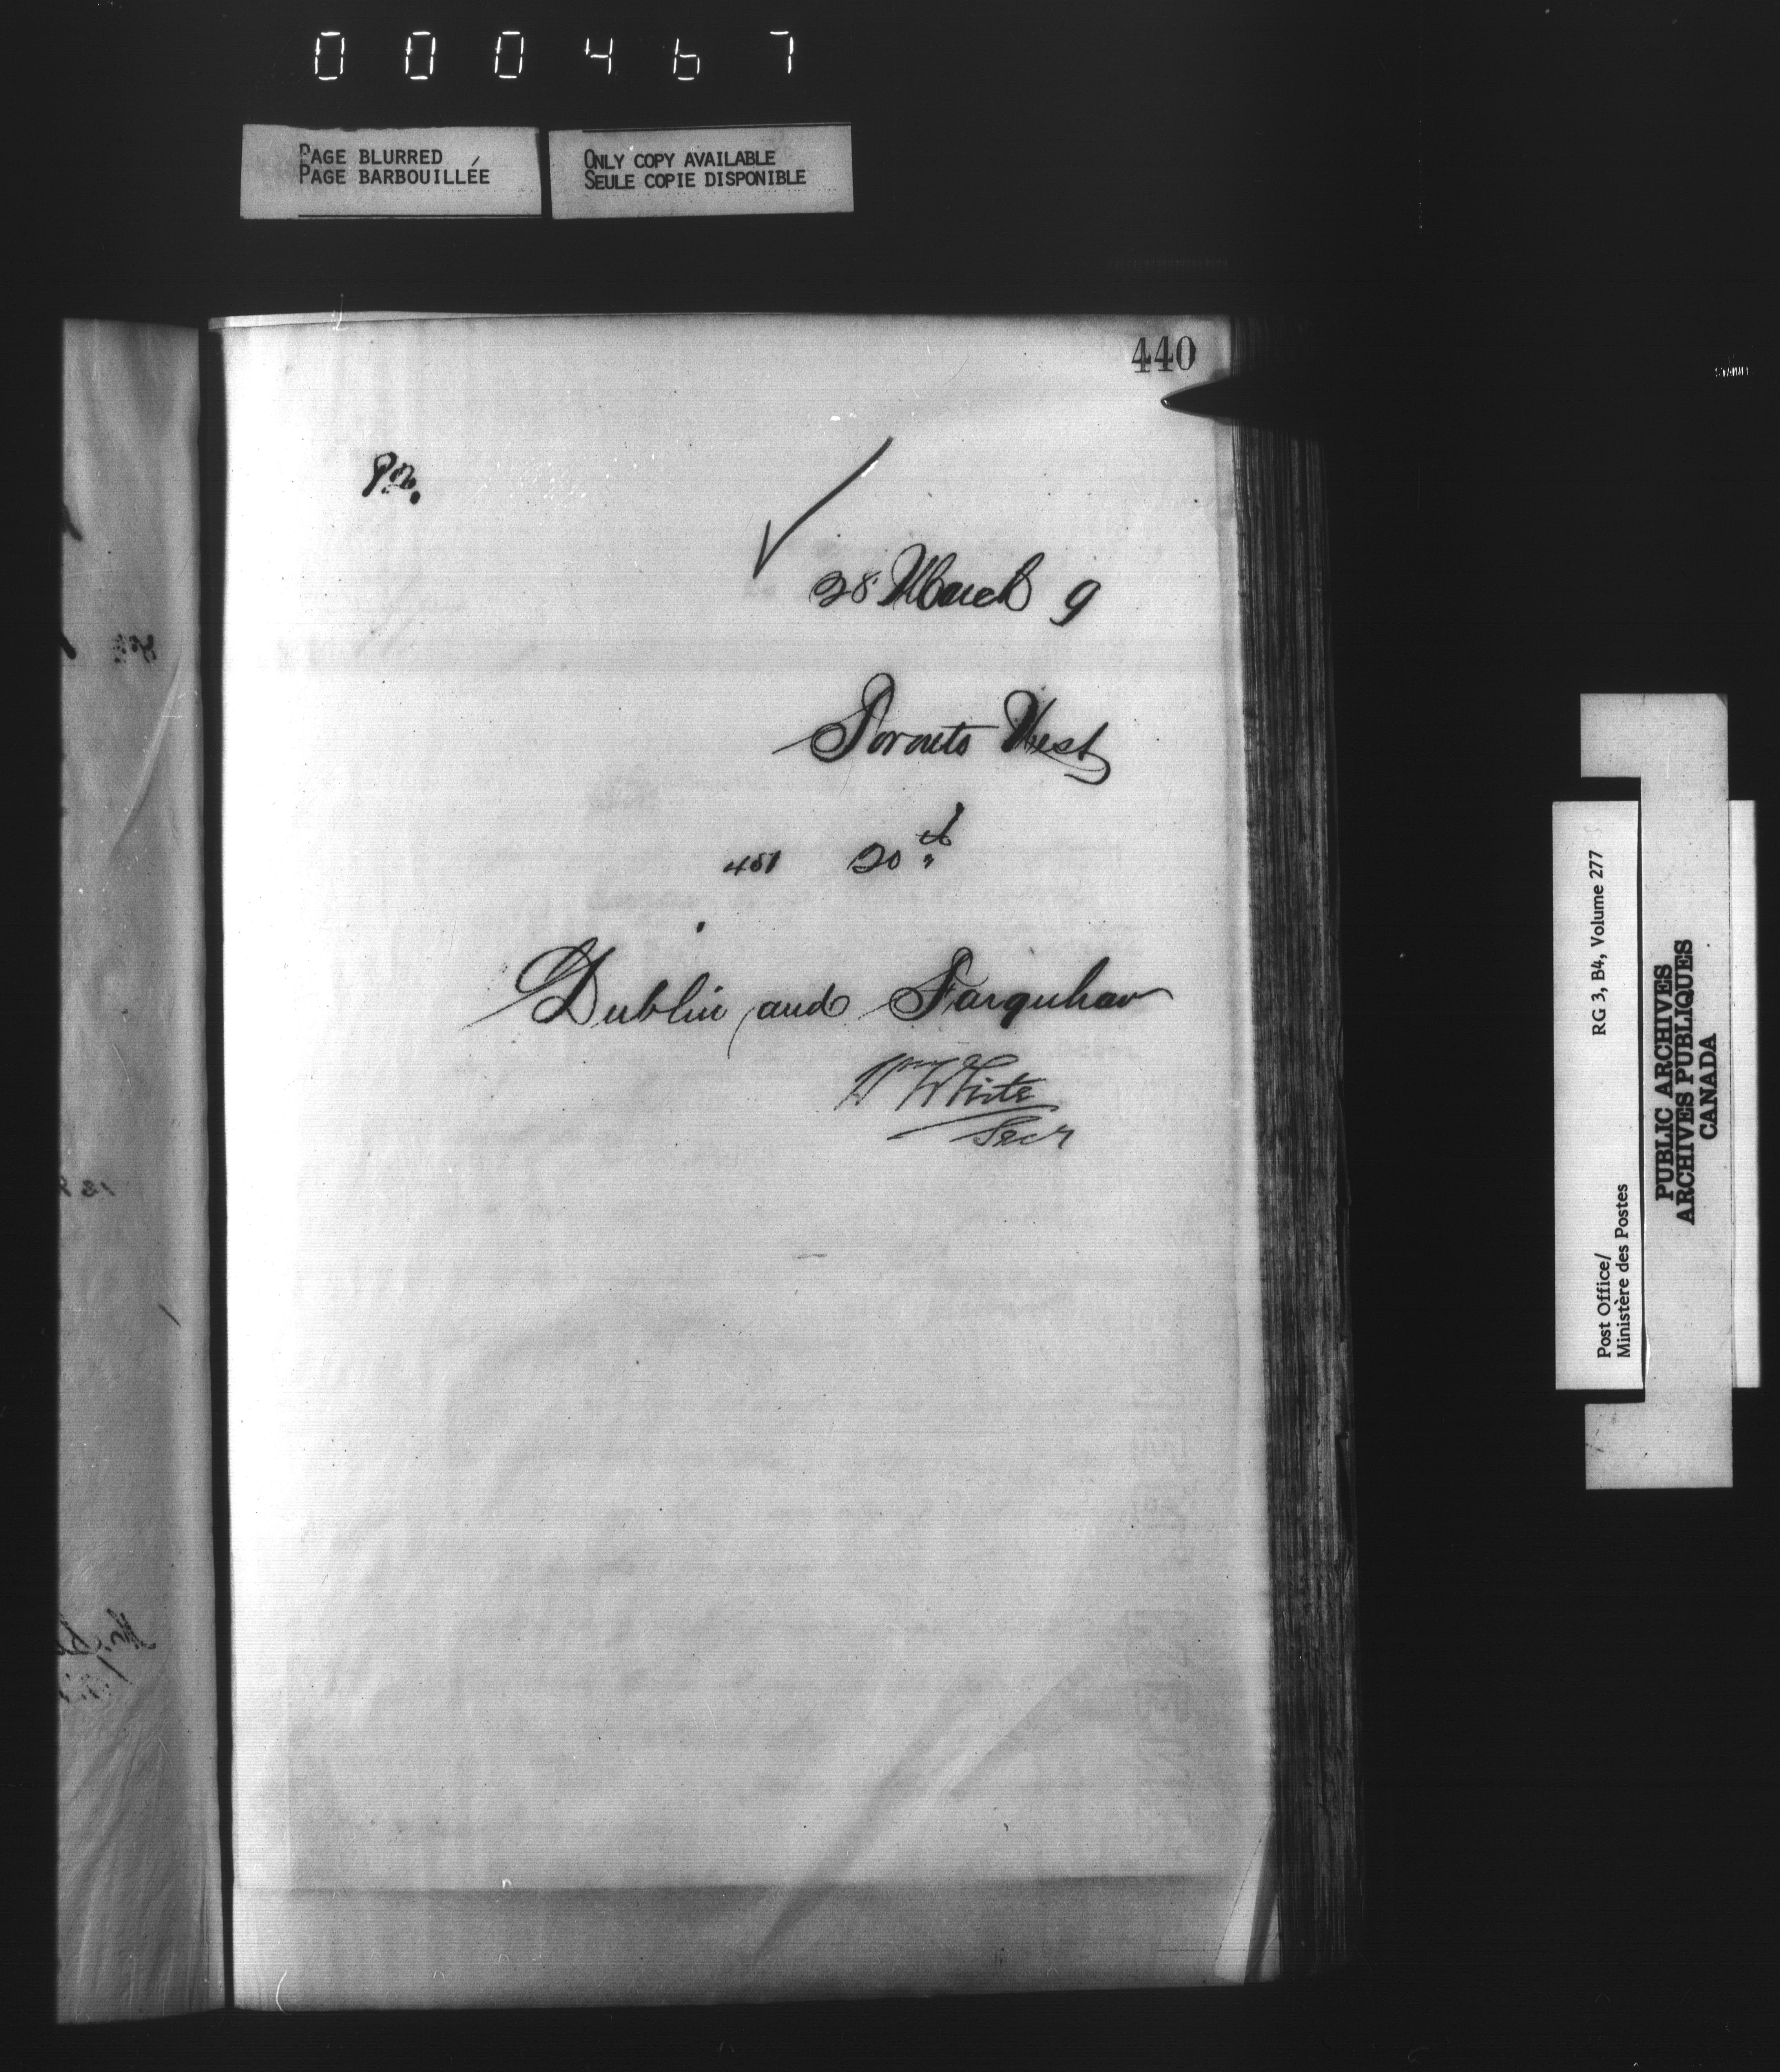 000467
PAGE BLURRED
PAGE BARBOUILLÉE
ONLY COPY AVAILABLE
SEULE COPIE DISPONIBLE
440
28 March 9
Toronto West
451 20th
Dublin and Farquhar
Wm White
Secy
Post Office/ RG 3, B4, Volume 277
Ministère des Postes
PUBLIC ARCHIVES
ARCHIVES PUBLIQUES
CANADA